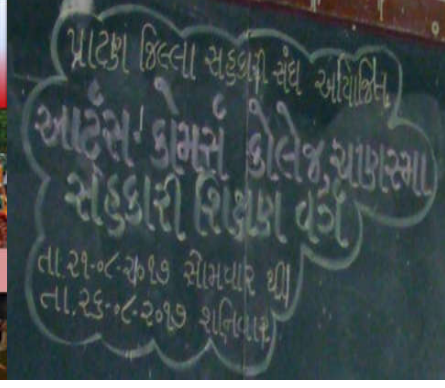 પાટણ જિલ્લા સહકારી સંઘ આયોજિત
આર્ટસ કોમર્સ કોલેજ, ચાણસ્મા
સહકારી શિક્ષણ વર્ગ
તા.૨૧-૦૮-૨૦૧૭ સોમવાર થી
તા.૨૬-૦૮-૨૦૧૭ શનિવાર